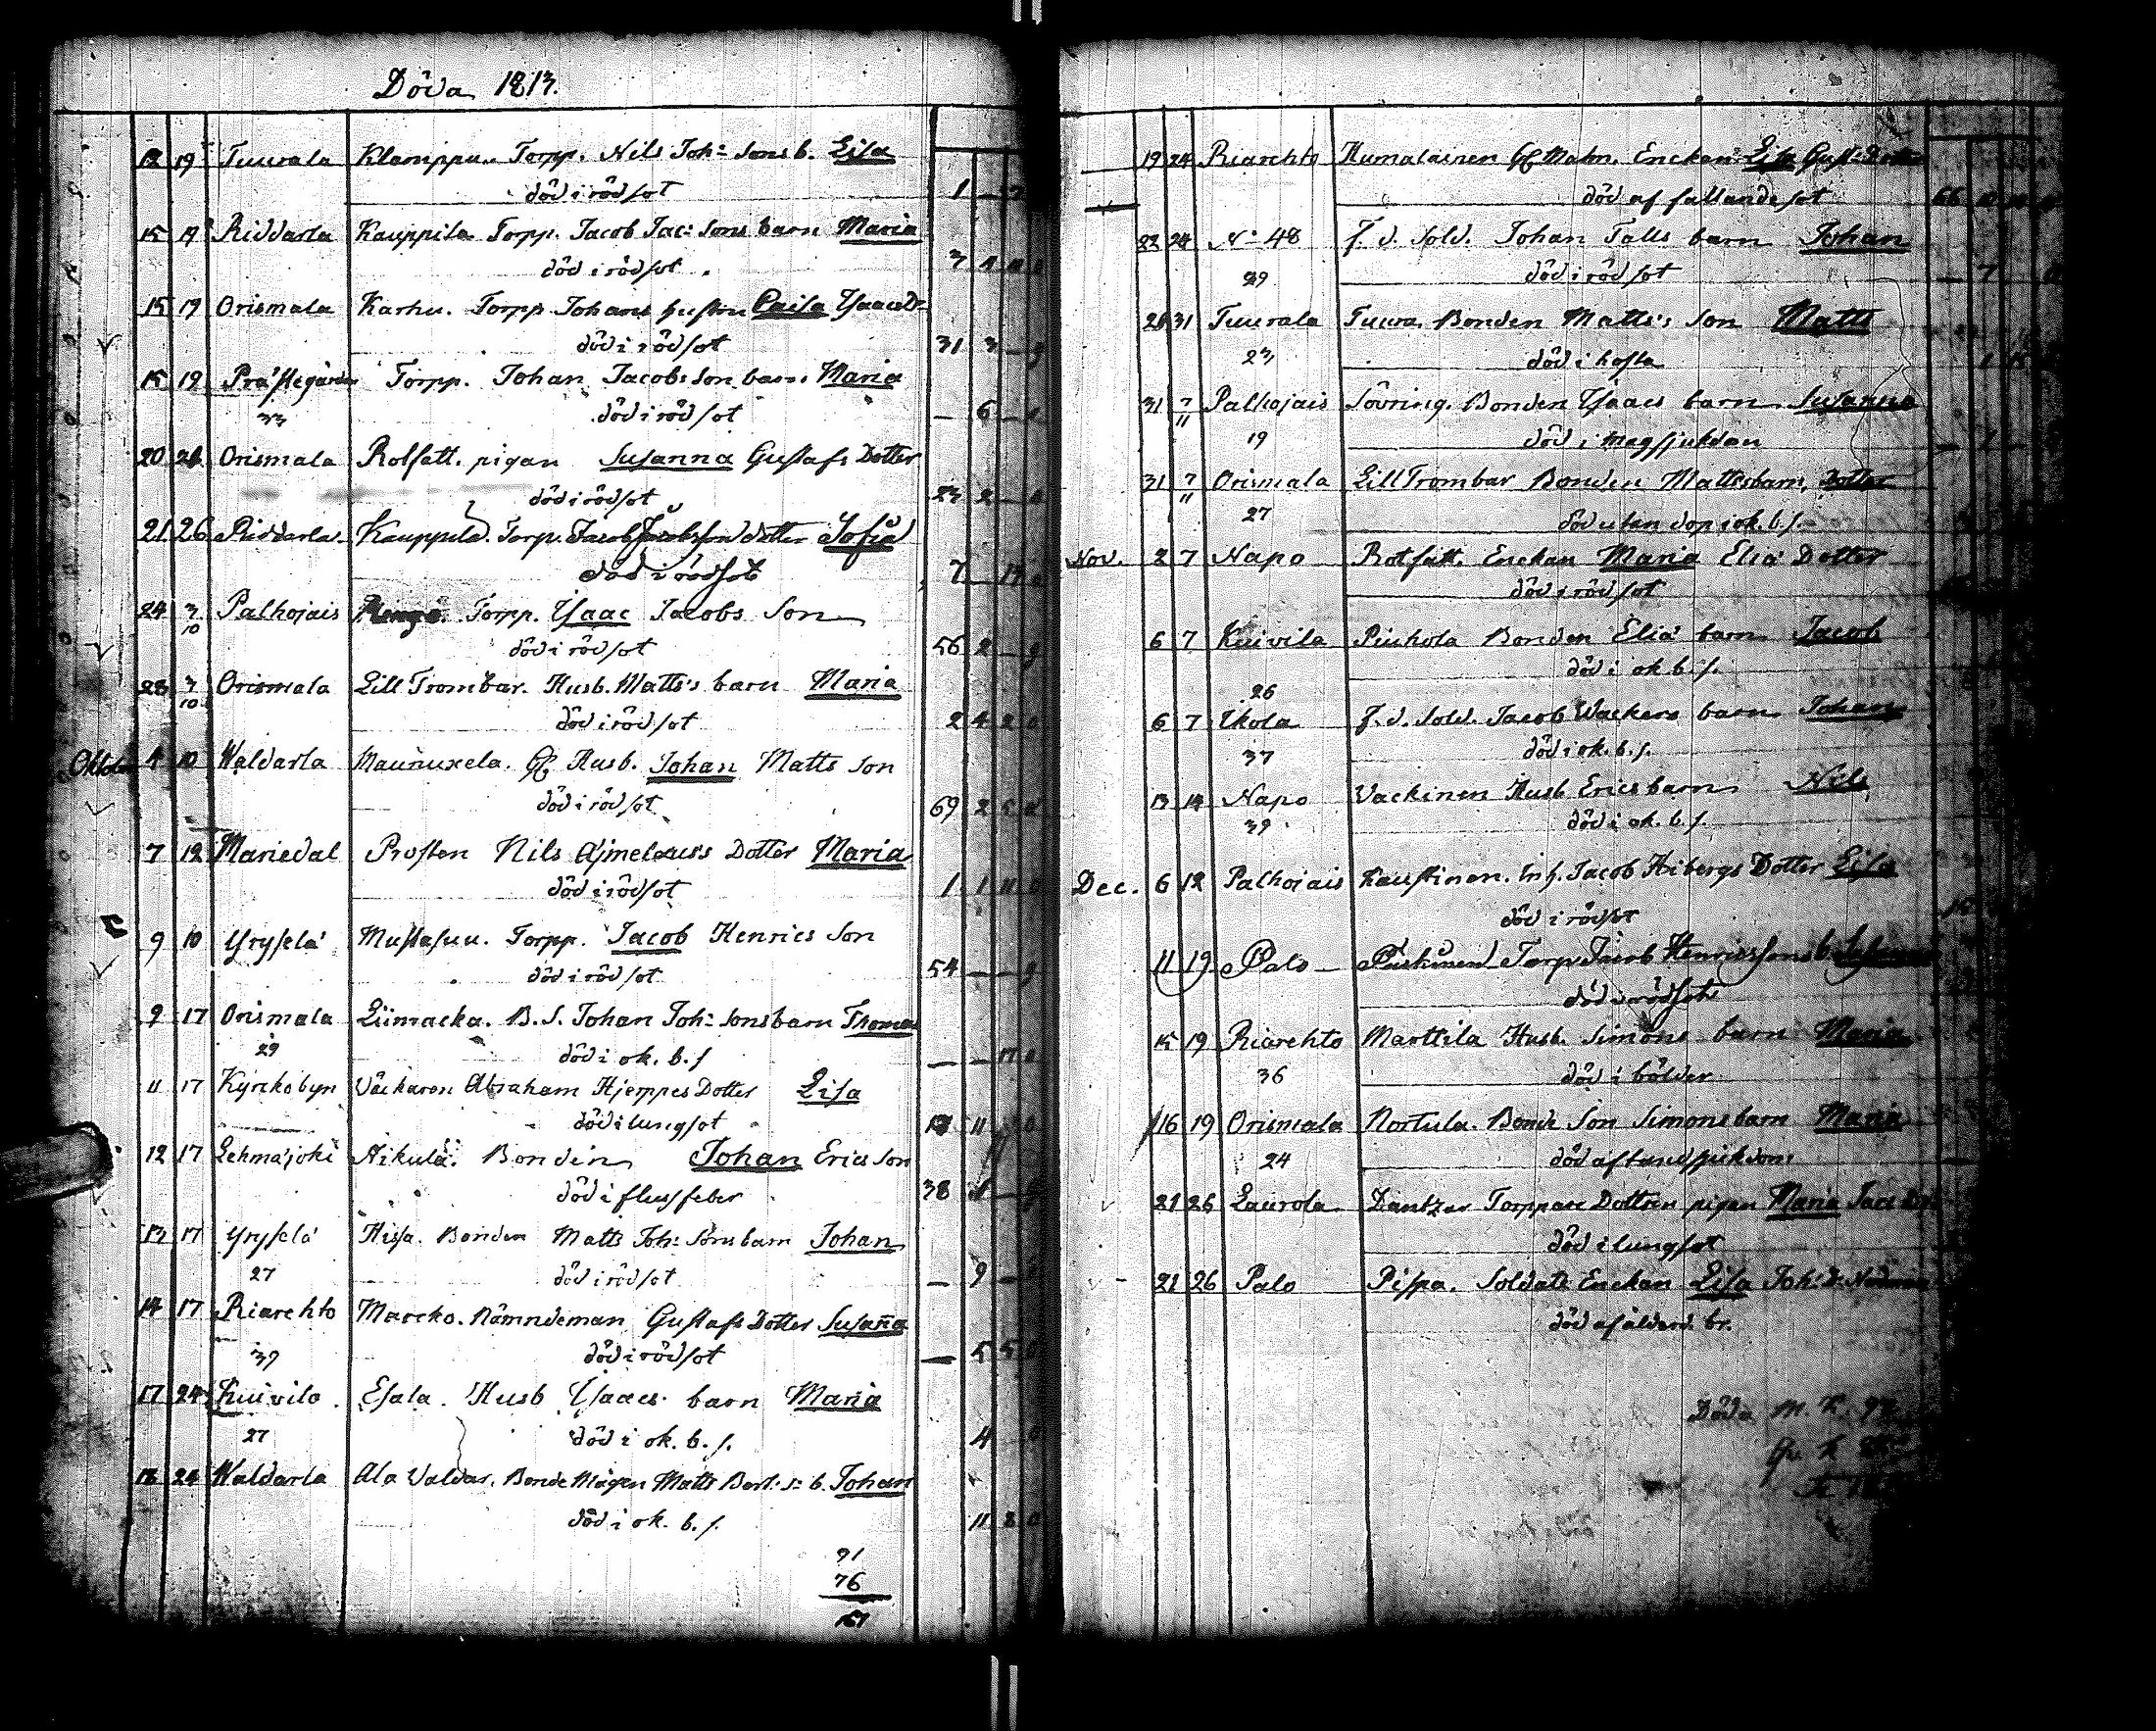 Döda 1813.
12 19 Tuurala Klemppu. Torp. Nils Joh: Sons b. Lisa
död i rödsot 1 —
15 19 Riddarla Kauppila Torp. Jacob Jac: Sons barn Maria
död i rödsot 3
15 19 Orismala Karhu. Torp. Johans hustru Caisa Isaacs D:
död i rödsot 31 3 —
15 19 Prästegården Torp. Johan Jacobs Son barn Maria
33 död i rödsot — 6 —
20 26 Orismala Rotfatt. pigan Susanna Gustafs Dotter
död i rödsot 23 2 —
21 26 Riddarla. Kauppila. Torp. Jacob Jacobsson dotter Sofia
död i rödsot 7 — 14
24 3/10 Palhojais Torp. Isaac Jacobs Son
död i rödsot 56 2 —
28 3/10 Orismala Lill Trombar. Husb. Matts's barn Maria
död i rödsot 2 4 2 0
Oktober 4 10 Waldarla Maunuxela. Gl. Husb. Johan Matts Son
död i rödsot 69 2
7 12 Mariedal Prosten Nils Ajmelaus's Dotter Maria
död i rödsot 1 1 11 0
9 10 Yryselä Mustasuu. Torp. Jacob Henrics Son
död i rödsot 54 — —
9 17 Orismala Liimacka. B. S. Johan Joh: Sons barn Thomas
29 död i ok. b. s — — 17 0
11 17 Kyrckobyn Väckaren Abraham Hjerppes Dotter Lisa
död i lungsot 11
12 17 Lehmäjoki Nikula. Bonden Johan Erics Son
död i flussfeber 38
13 17 Yryselä Hissa. Bonden Matts Joh: Sons barn Johan
27 död i rödsot — 9 —
14 17 Riarehto Marcko. Nämndeman Gustafs Dotter Susaña
39 död i rödsot — 5 5 0
17 24 Kuivila. Esala. Husb Isaacs. barn Maria
27 död i ok. b. s. 4
18 24 Waldarla Ala Valdar. Bonde Mågen Matts Bert: S: b. Johan
död i ok. b. s. 11 8 0
91
76
167
19 24 Riarehto Humalainen Gl. Malm. Enckan Lisa Gust: Dotter
död af fallandesot 66
22 24 N:o 48 f. d. Sold. Johan Talls barn Johan
29 död i rödsot — 7
26 31 Tuurala Tuura. Bonden Matts's Son Matts
23 död i hosta 1 15
31 7/11 Palhojais Sövring. Bonden Isaacs barn Susanna
19 död i magsjukdan — 1
31 7/11 Orismala Lill Trombar Bonden Matts's barn, Dotter
27 död utan dop i ok. b. s.
Nov. 2 7 Napo Rotfatt. Enckan Maria Eliä Dotter
död i rödsot
6 7 Kuivila Piuhola Bonden Eliä barn Jacob
26 död i ok. b. s.
6 7 Ikola f. d. Sold. Jacob Wackers barn Johan
37 död i ok. b. s.
13 14 Napo Vackinen Husb Erics barn Nils
39 död i ok. b. s.
Dec. 6 12 Palhojais Kaustinen. Inh. Jacob Hibergs Dotter Lisa
död i rödsot
11 19 Palo Torp. Jacob Henricssons b.
död i rödsot
15 19 Riarehto Marttila Husb. Simons barn Maria
36 död i bölder
16 19 Orismala Nortula. Bonde Son Simons barn Maria
24 död af tandsjukdom
21 26 Laurola. Dantzar Torpare Dottren pigan Maria Jacs Dr
död i lungsot
21 26 Palo Pispa. Soldats Enckan Lisa Joh: D:
död af ålderd. br.
Döda M. K.
Qv. K